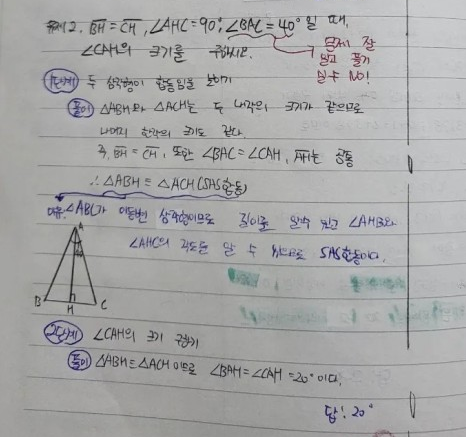 2. BH = CH, ∠AHC = 90°, ∠BAC = 40° 일 때,
∠CAH의 크기를 구하시오.
문제 잘
읽고 풀기
실수 NO!
1단계 두 삼각형이 합동임을 보이기
풀이 △ABH와 △ACH는 두 내각의 크기가 같으므로
나머지 한각의 크기도 같다.
즉, BH = CH, 또한 ∠BAC = ∠CAH, AH는 공통
∴ △ABH ≡ △ACH (SAS합동)
이유: △ABC가 이등변 삼각형이므로 길이를 알 수 있고 ∠AHB와
∠AHC의 각도를 알 수 있으므로 SAS합동이다.
A
40
B H C
2단계 ∠CAH의 크기 구하기
풀이 △ABH ≡ △ACH 이므로 ∠BAH = ∠CAH = 20° 이다.
답: 20°